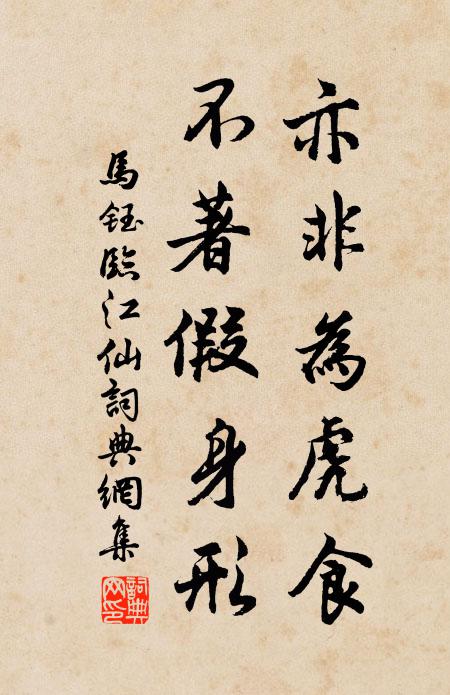 亦非為虎食
不著假身形
馬鈺臨江仙詞典網集
詞典網印